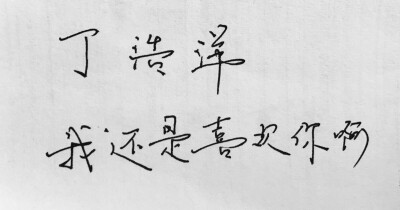 丁浩洋
我还是喜欢你啊